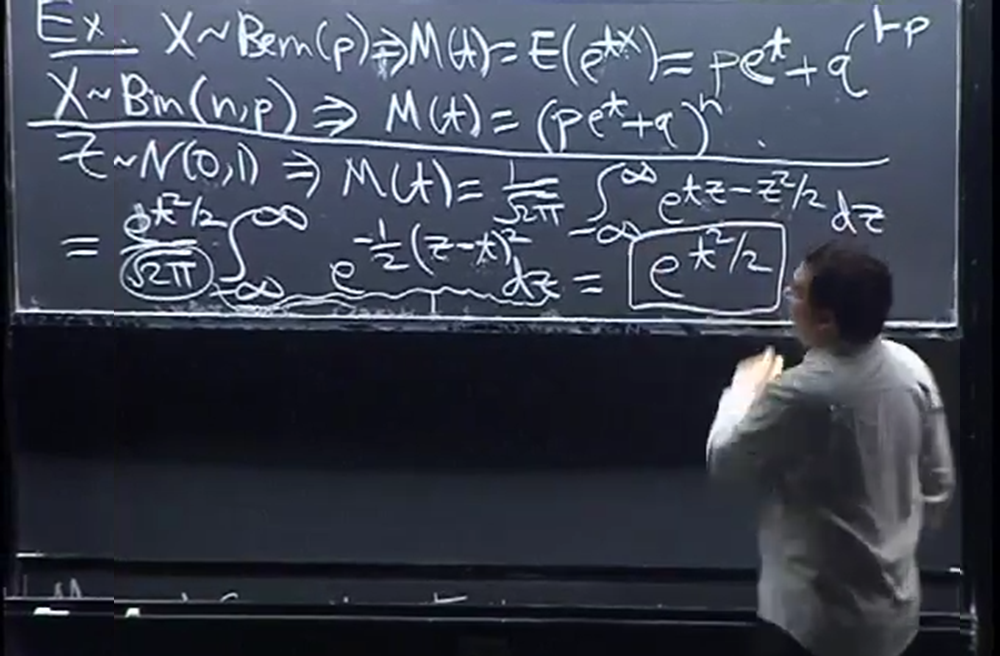 Ex. X~Bern(p) ⇒ M(t) = E(e^{tX}) = pe^t + q 1-p
X~Bin(n,p) ⇒ M(t) = (pe^t + q)^n.
Z~N(0,1) ⇒ M(t) = 1/√2π ∫_{-∞}^{∞} e^{tz - z²/2} dz
= e^{t²/2}/√2π ∫_{-∞}^{∞} e^{-1/2(z-t)²} dz = e^{t²/2}